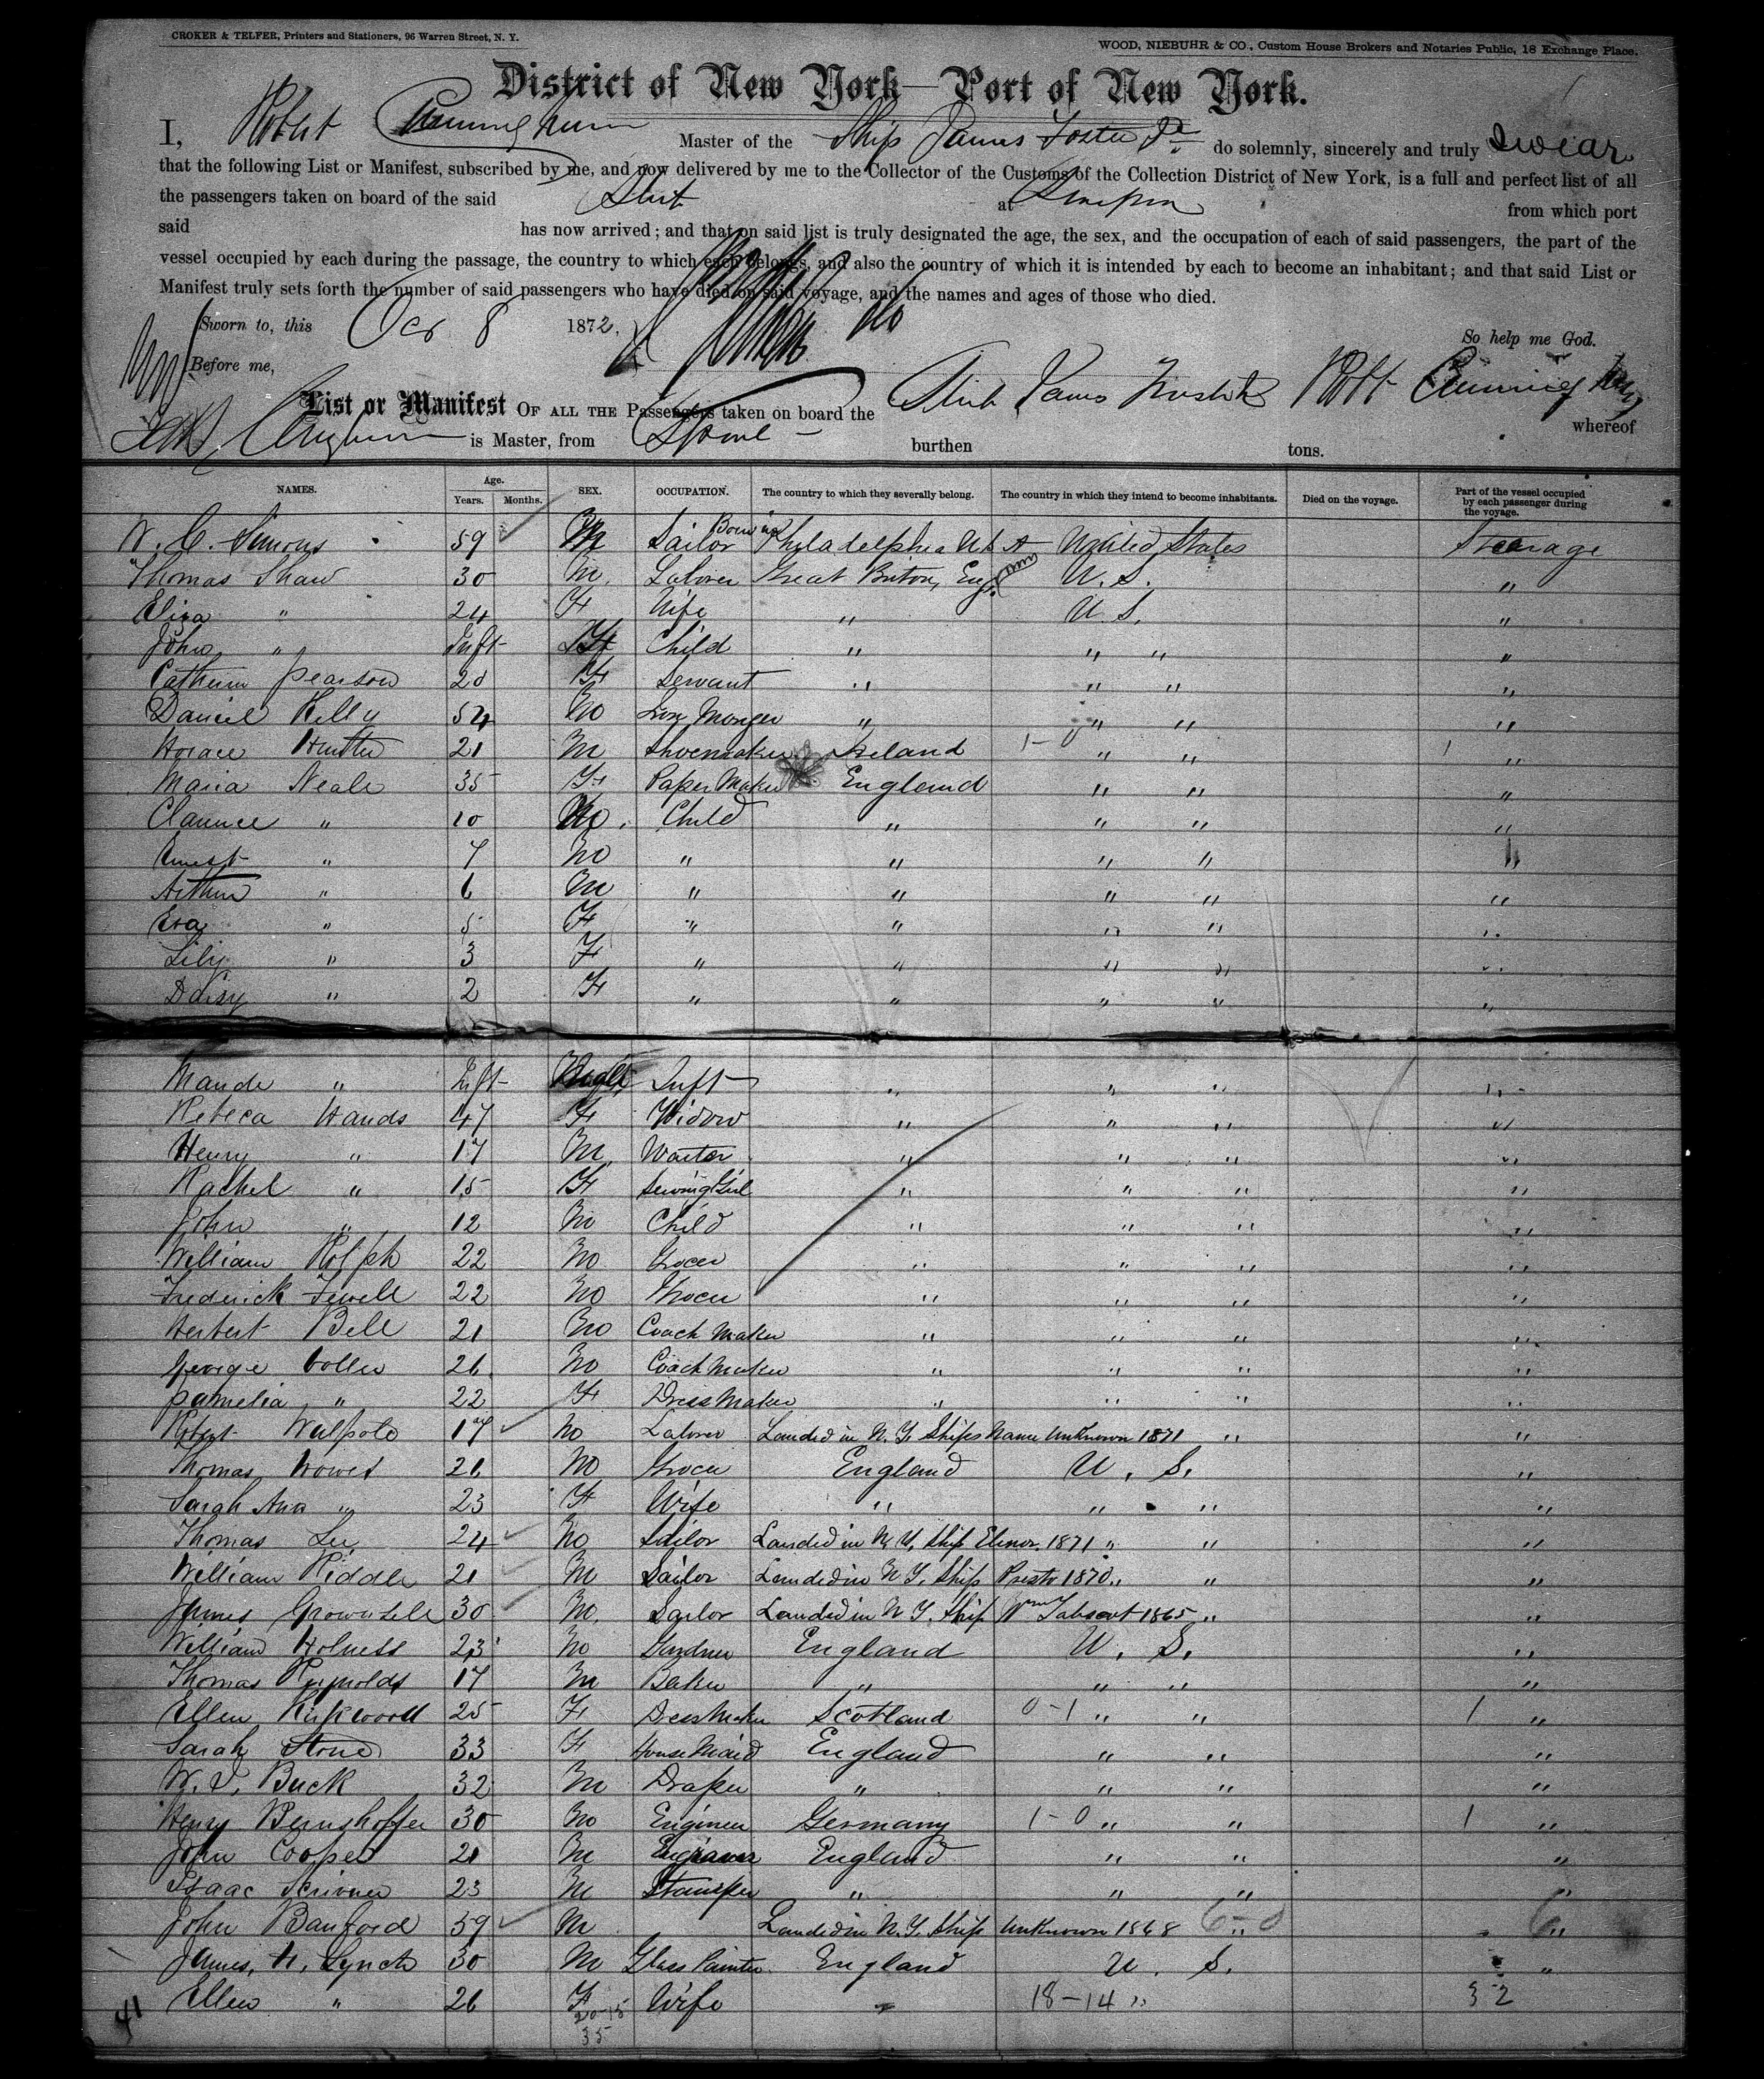 CROKER & TELFER, Printers and Stationers, 96 Warren Street, N. Y.
WOOD, NIEBUHR & CO., Custom House Brokers and Notaries Public, 18 Exchange Place.
District of New York—Port of New York.
I, Robert Cunningham Master of the Ship James Foster Jr do solemnly, sincerely and truly swear
that the following List or Manifest, subscribed by me, and now delivered by me to the Collector of the Customs of the Collection District of New York, is a full and perfect list of all
the passengers taken on board of the said Ship at from which port
said has now arrived; and that on said list is truly designated the age, the sex, and the occupation of each of said passengers, the part of the
vessel occupied by each during the passage, the country to which each belongs, and also the country of which it is intended by each to become an inhabitant; and that said List or
Manifest truly sets forth the number of said passengers who have died on said voyage, and the names and ages of those who died.
Sworn to, this Oct 8 1872, So help me God.
Before me,
List or Manifest OF ALL THE Passengers taken on board the Ship James Robt Cunningham whereof
is Master, from burthen tons.
NAMES. Age. Years. Months. SEX. OCCUPATION. The country to which they severally belong. The country in which they intend to become inhabitants. Died on the voyage. Part of the vessel occupied by each passenger during the voyage.
W. C. Simons 59 M Sailor Born in Philadelphia U S A United States Steerage
Thomas Shaw 30 M. Laborer Great Briton, Eng. U. S. "
Eliza " 24 F Wife " U. S. "
John " Inft Child " " " "
Pearson 20 F Servant " " " "
Daniel Kelly 54 M Iron Monger " " " "
Horace 21 M Shoemaker Ireland 1-0 " " 1 "
Maria Neale 35 F Paper Maker England " " "
Clarence " 10 M. Child " " " "
Ernest " 7 M " " " " "
Arthur " 6 M " " " " "
Eva " 5 F " " " " "
Lily " 3 F " " " " "
Daisy " 2 F " " " " "
Maude " Inft Inft " " " "
Rebeca Hands 47 F Widow " " " "
Henry " 17 M. Waiter " " " "
Rachel " 15 F Sewing Girl " " " "
John " 12 M Child " " " "
William Rolph 22 M Grocer " " " "
Frederick Jewell 22 M Grocer " " " "
Herbert Bell 21 M Coach Maker " " " "
George 26 M Coach Maker " " " "
Pamelia " 22 F Dress Maker " " " "
Robert Walpole 17 M Laborer Landed in N. Y. Ships Name Unknown 1871 " "
Thomas 26 M Grocer England U. S. "
Sarah Ann " 23 F Wife " " " "
Thomas Lee 24 M Sailor Landed in N. Y. Ship Elenor 1871 " " "
William Riddle 21 M Sailor Landed in N. Y. Ship 1870 " " "
James 30 M. Sailor Landed in N. Y. Ship Wm 1865 " "
William Holness 23 M Gardner England U. S. "
Thomas Reynolds 17 M Baker " " " "
Ellen Kirkwood 25 F Dress Maker Scotland 0-1 " " 1 "
Sarah Stone 33 F House Maid England " " "
Buck 32 M Draper " " " "
Henry 30 M Engineer Germany 1-0 " " 1 "
John Cooper 21 M Engraver England " " "
Isaac Scrivner 23 M " " " "
John Banford 59 M Landed in N. Y. Ship Unknown 1868 6-0 " 6 "
James, H, Lynch 30 M Glass Painter England U. S. "
Ellen " 26 F Wife " 18-14 " 32
20-15
35
41